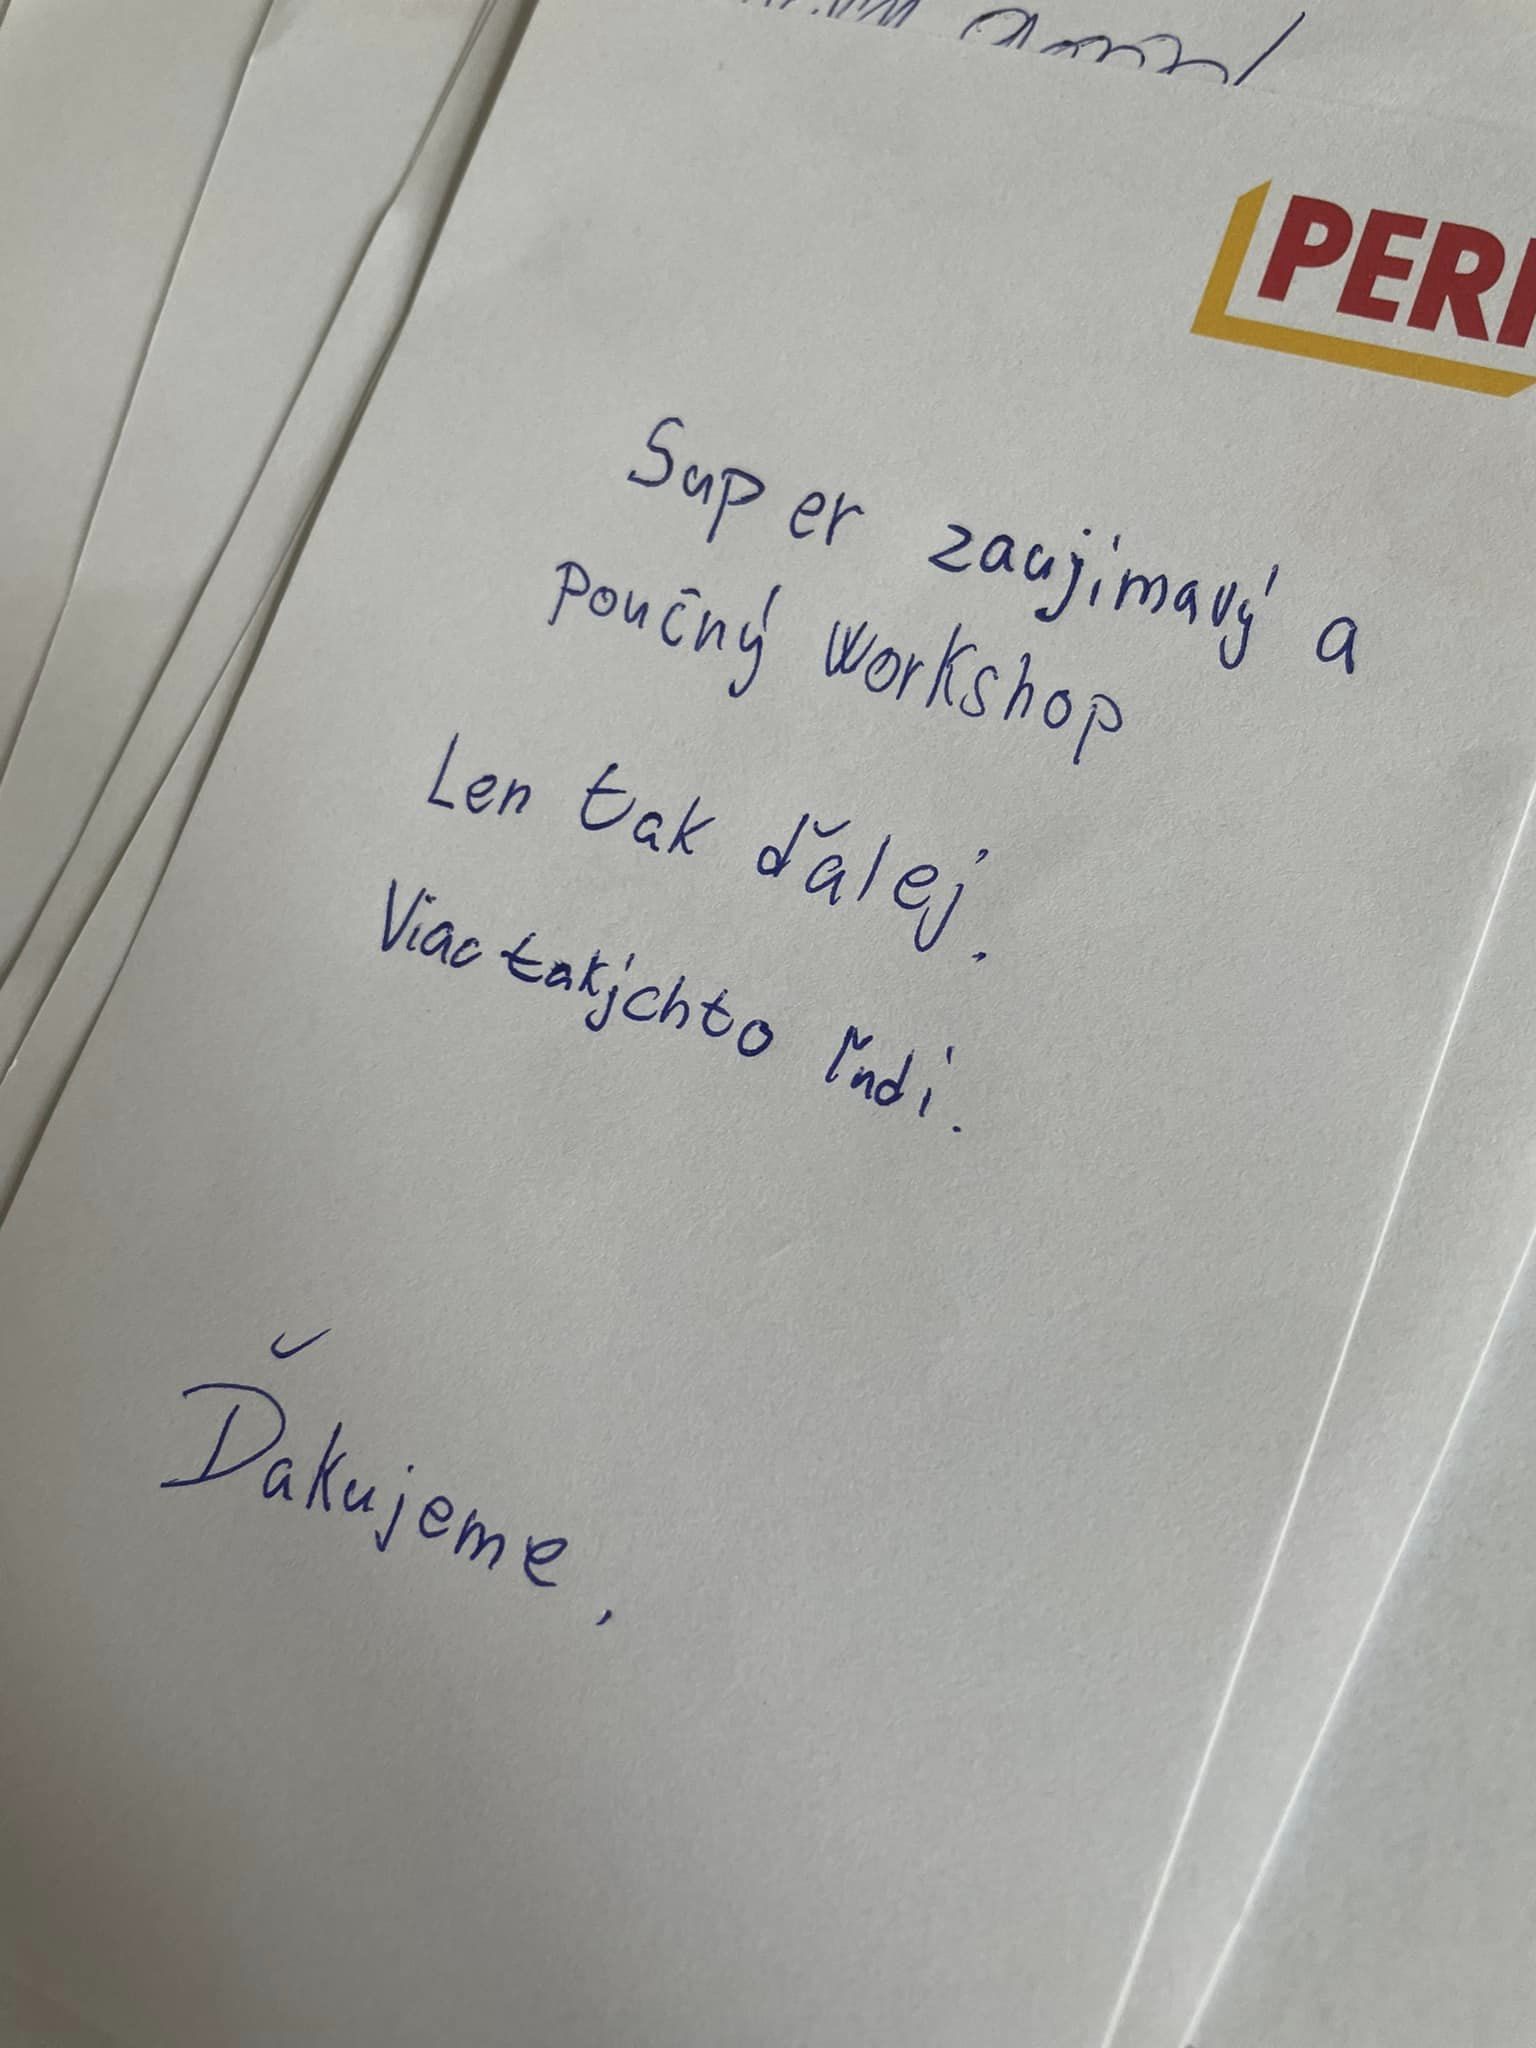 PERI
Super zaujímavý a
poučný workshop
Len tak ďalej.
Viac takýchto ľudí.
Ďakujeme,